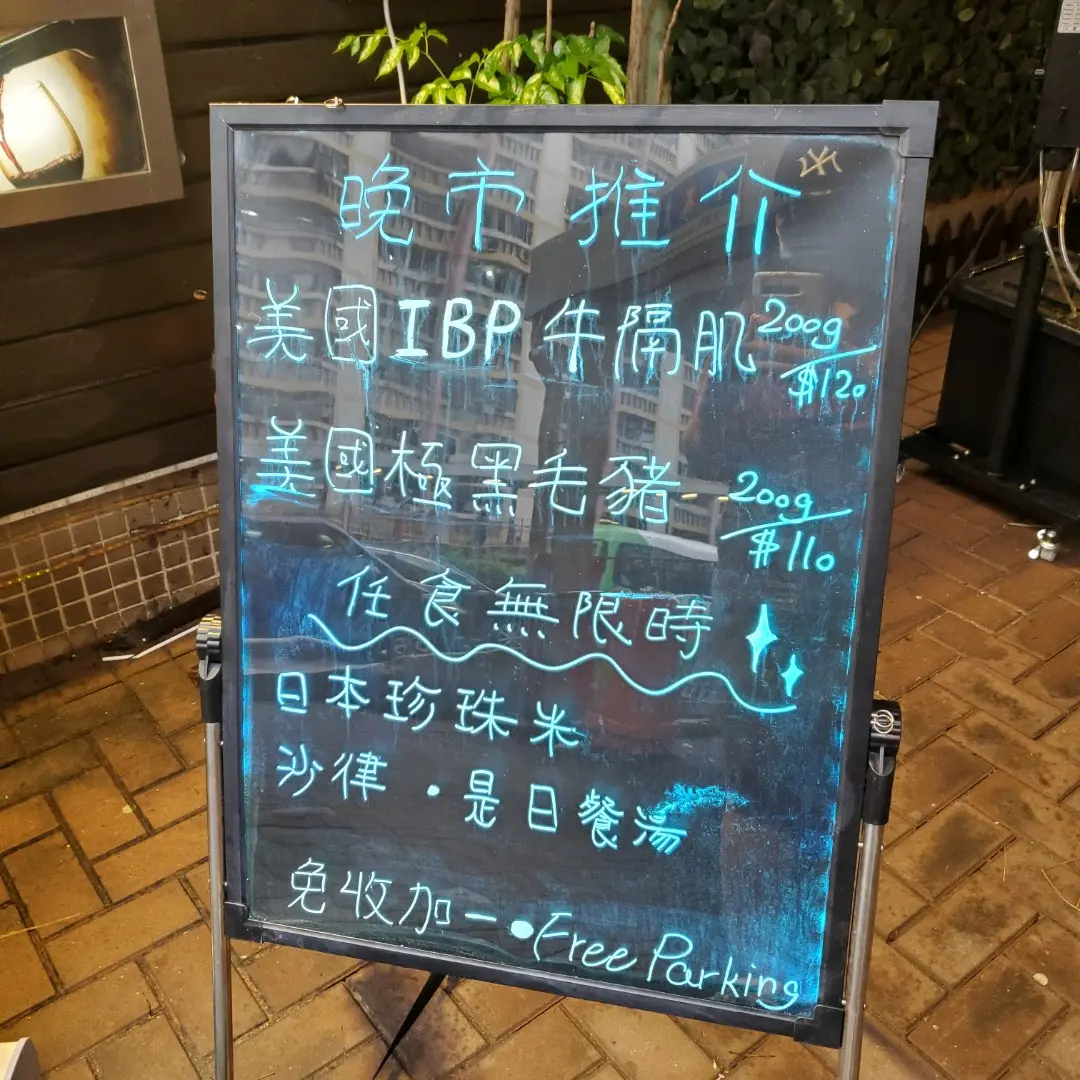 晚市推介
美國IBP牛隔肌 200g
$120
美國極黑毛豬 200g
$110
任食無限時
日本珍珠米
沙律 · 是日餐湯
免收加一 • Free Parking